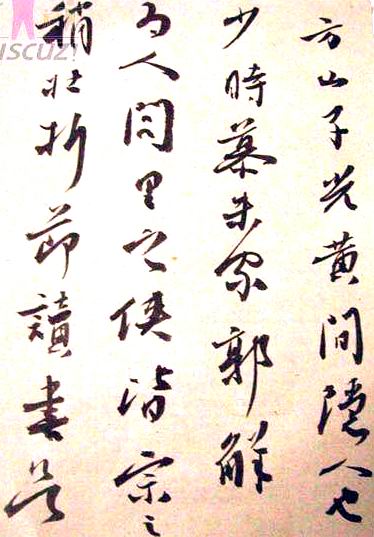 方山子光黄間隱人也
少時慕朱家郭解
為人閭里之俠皆宗之
稍壯折節讀書
ISCUZ!